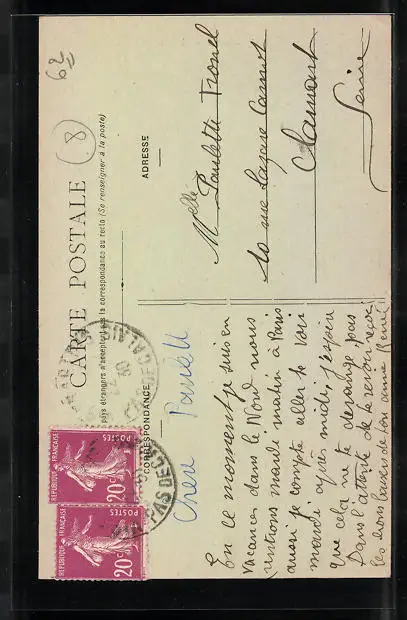 62
8
CARTE POSTALE
pays étrangers n'acceptent pas la correspondance au recto (Se renseigner à la poste)
CORRESPONDANCE
ADRESSE
Chère Paulette
En ce moment je suis en
vacances dans le Nord nous
rentrons mardi matin à Paris
aussi je compte aller te voir
mardi après midi, j'espère
que cela ne te dérange pas
Dans l'attente de te revoir reçoi
les bons baisers de ton amie
Melle Paulette Tronel
10 rue Lazare Carnot
Clamart
Seine
REPUBLIQUE FRANÇAISE
POSTES
20c
REPUBLIQUE FRANÇAISE
POSTES
20c
PAS DE CALAIS